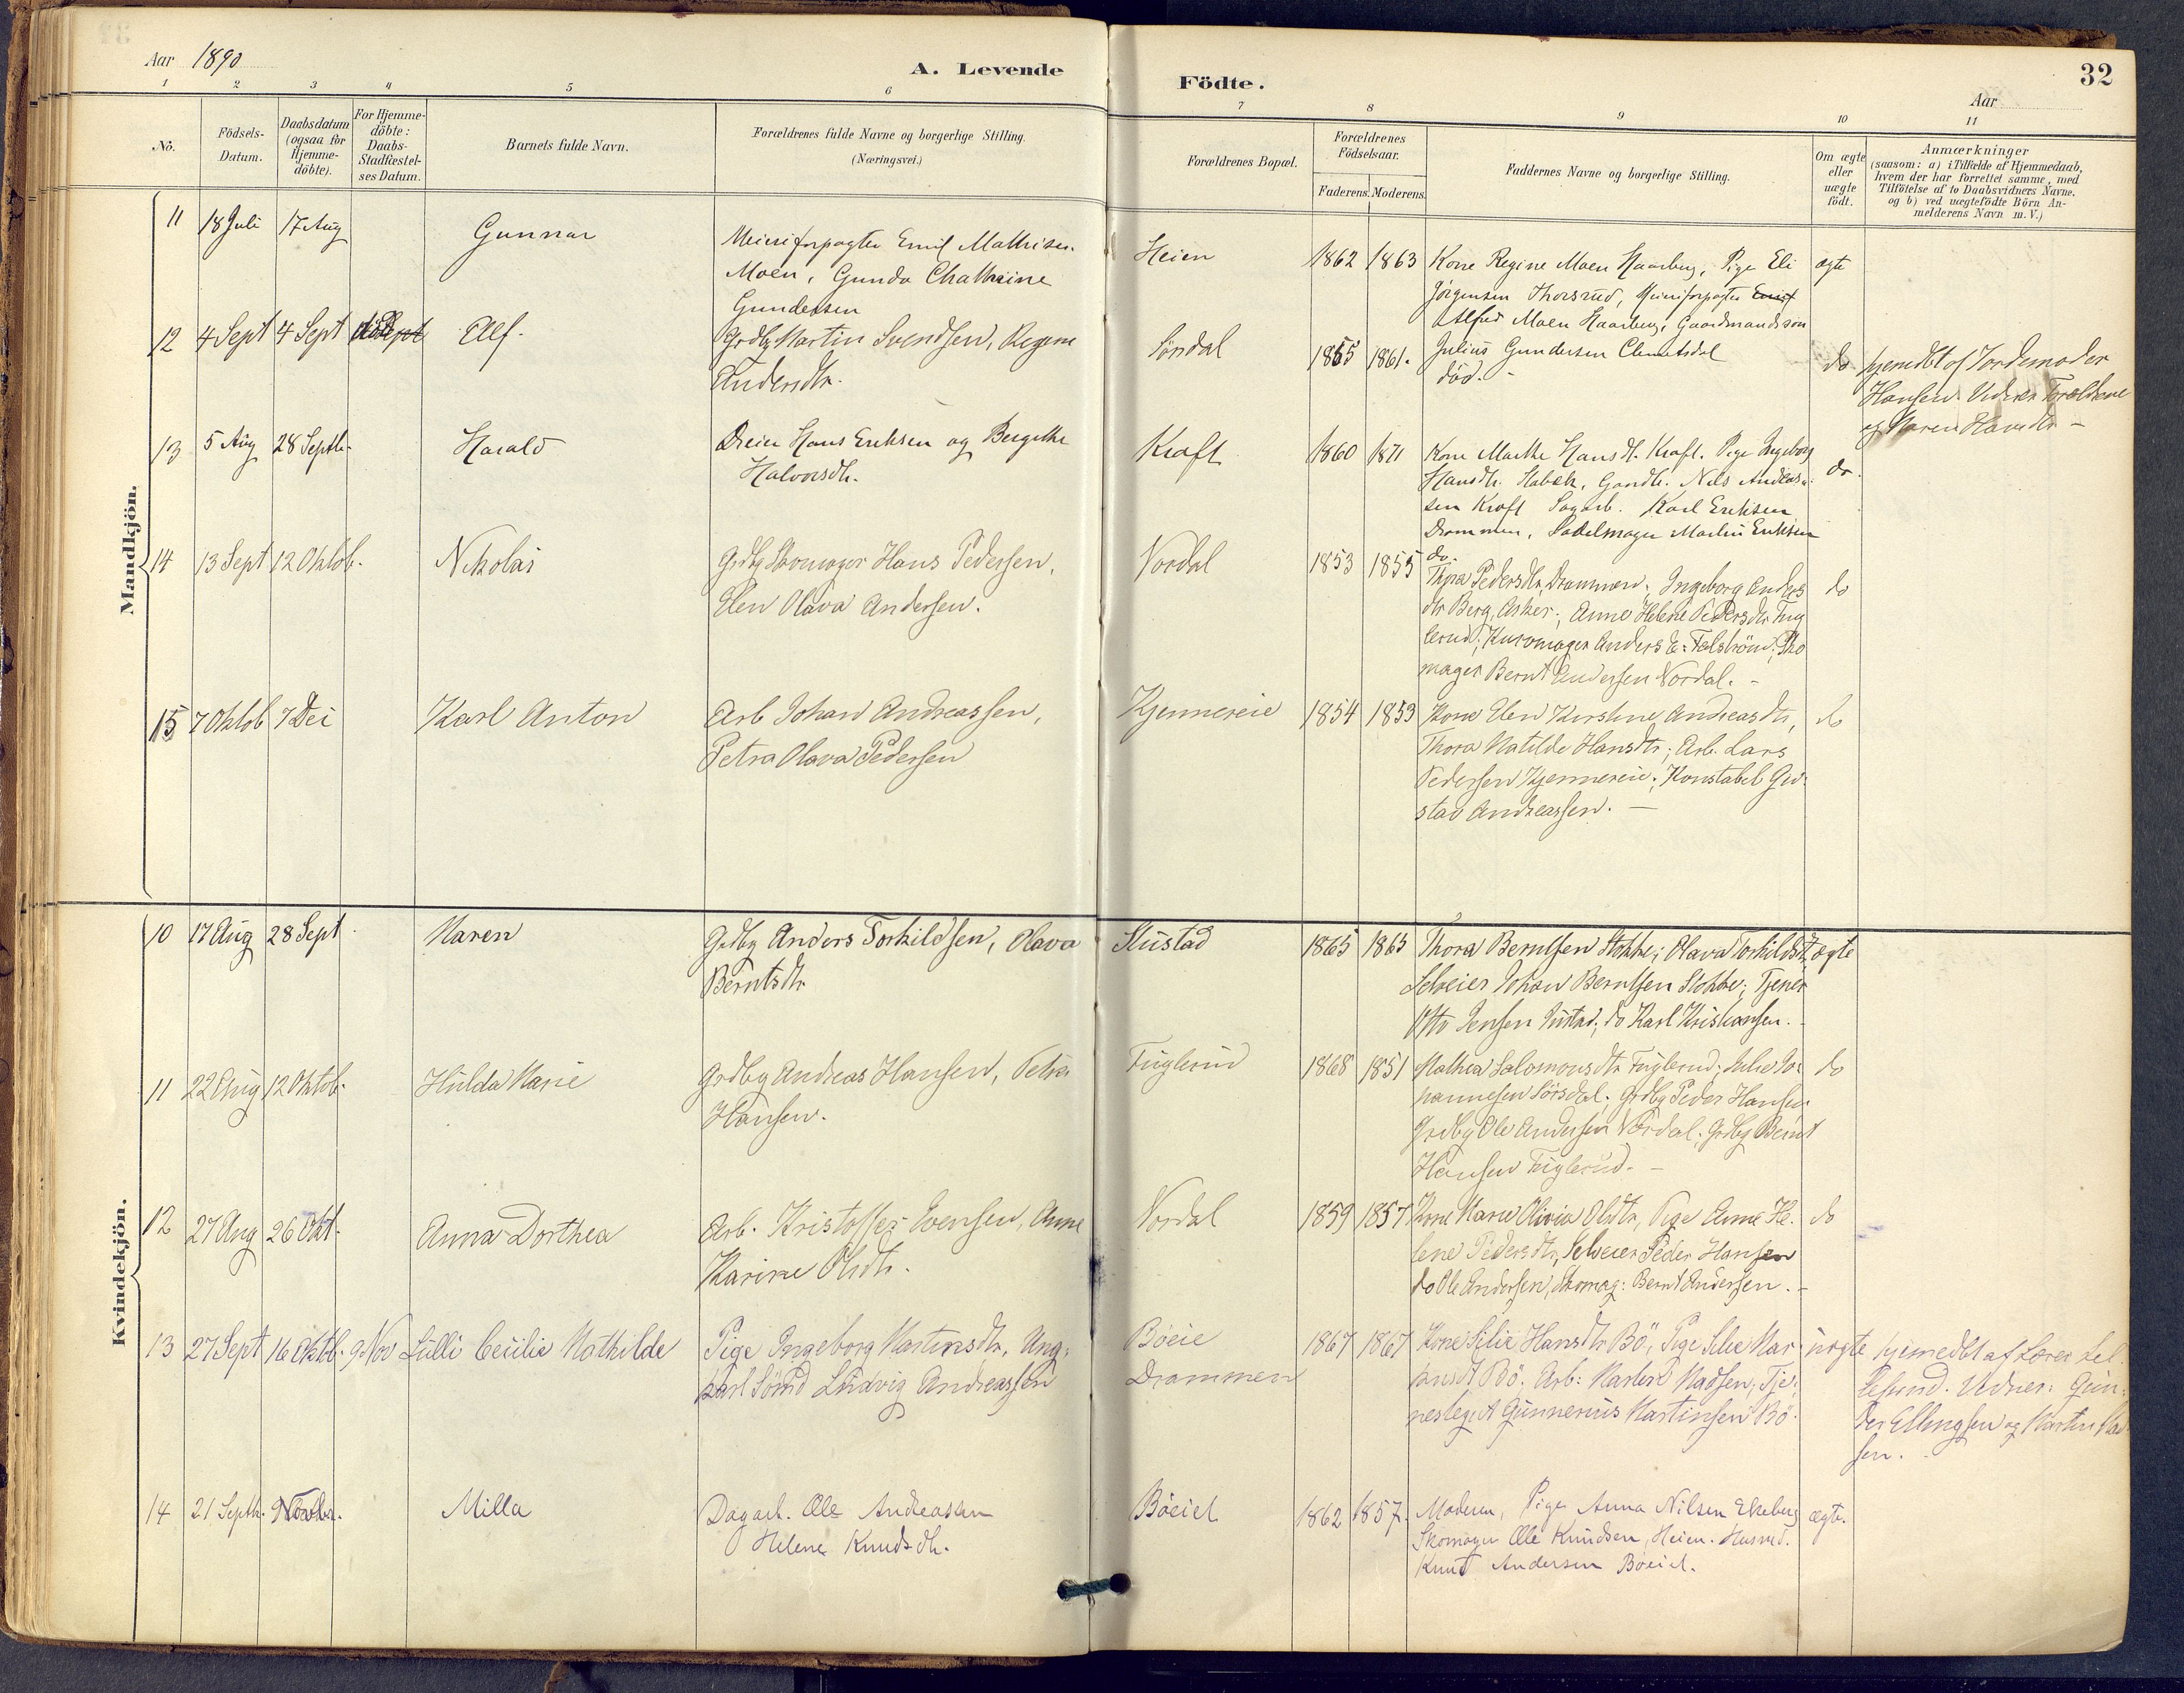 Aar 1890
A. Levende Födte.
32
Aar
1 2 3 4 5 6 7 8 9 10 11
No.
Födsels-Datum.
Daabsdatum (ogsaa for Hjemmedöbte).
For Hjemmedöbte: Daabs-Stadfæstelses Datum.
Barnets fulde Navn.
Forældrenes fulde Navne og borgerlige Stilling.
(Næringsvei.)
Forældrenes Bopæl.
Forældrenes Födselsaar.
Faderens. Moderens.
Faddernes Navne og borgerlige Stilling.
Om ægte eller uægte födt.
Anmærkninger
(saasom: a) i Tilfælde af Hjemmedaab, hvem der har forrettet samme, med Tilföielse af to Daabsvidners Navne, og b) ved uægtefödte Börn Anmelderens Navn m.V.)
Mandkjön.
11 18 Juli 17 Aug Gunnar
Meieriforpagter Emil Mathisen
Moen, Gunda Chathrine
Gundersen
Heien 1862 1863
Kone Regine Moen Haarberg, Pige Eli
Jörgensen Thorsrud, Meieriforpagter Emil
Alfred Moen Haarberg, Gaardmandssön
Julius Gundersen Clemetsdal
ægte
12 4 Sept 4 Sept Alf.
Grdbg Martin Svendsen, Regine
Andersdtr.
Sörsdal 1865 1861.
död. -
do
hjemdbt af Jordemoder
Hansen. Vidner Forældrene
og Maren Hansdtr -
13 5 Aug 28 Septb. Harald
Dreier Hans Eriksen og Bergithe
Halvorsdtr.
Kraft 1860 1871
Kone Marthe Hansdt. Kraft. Pige Ingeborg
Hansdtr. Habæk, Gaardb. Nils Andreas-
sen Kraft Sagarb. Karl Eriksen
Drammen, Sadelmager Martin Eriksen
do.
do.
14 13 Sept 12 Oktob. Nikolai
Grdbg Skomager Hans Pedersen,
Elen Olava Andersen.
Nordal 1853 1855
Thora Pedersdtr, Drammen; Ingeborg Anders
dtr Berg, Asker; Anne Helene Pedersdtr Fug
lerud; Kurvmager Anders E. Falström; Sko
mager Bernt Andersen Nordal. -
do
15 7 Oktob 7 Dec Karl Anton
Arb Johan Andreassen,
Petra Olava Pedersen
Kjennereie 1854 1853
Kone Elen Kirstine Andreasdtr,
Thora Matilde Hansdtr; Arb. Lars
Pedersen Kjennereie; Konstabel Gu-
stav Andreassen. -
do
Kvindekjön.
10 17 Aug 28 Sept. Maren
Grdbg Anders Torkildsen, Olava
Berntsdtr
Stustad 1865 1865
Thora Berntsen Stokke; Olava Torkildsdtr,
Selveier Johan Berntsen Stokke; Tjener
Otto Jensen Justad; do Karl Kristiansen.
ægte
11 22 Aug 12 Oktob. Hulda Marie
Grdbg Andreas Hansen, Petra
Hansen.
Fuglerud 1868 1851
Mathea Salomonsdtr Fuglerud; Julie Jo-
hannesen Sörsdal; Grdbg Peder Hansen
Grdbg Ole Andersen Nordal; Grdbg Bernt
Hansen Fuglerud. -
do
12 27 Aug 26 Okt. Anna Dorthea
Arb. Kristoffer Evensen, Anne
Karine Olsdtr.
Nordal 1859 1857
Kone Marie Olivia Olsdtr, Pige Anne He-
lene Pedersdtr, Selveier Peder Hansen
do Ole Andersen, Skomag: Bernt Andersen. -
do
13 27 Sept 16 Oktob. 9 Nov Lulli Cecilie Mathilde
Pige Ingeborg Martinsdtr, Ung-
karl Ludvig Andreassen
Böeie
Drammen
1867 1867
Kone Silie Hansdtr Bö, Pige Silie Mar-
tinsdt Bö. Arb: Martin Madsen, Tje-
nestegut Gunnerius Martinsen Bö.
uægte
hjemedbt af Lærer Lel-
lesund. Vidner: Gun-
der Ellingsen og Martin Mad-
sen.
14 21 Septb. 9 Novbr. Milla
Dagarb. Ole Andreassen
Helene Knudsdtr.
Böeiet 1862 1857.
Moderen, Pige Anna Nilsen Ekeberg
Skomager Ole Knudsen, Heien. Husmd.
Knud Andersen Böeiet.
ægte.